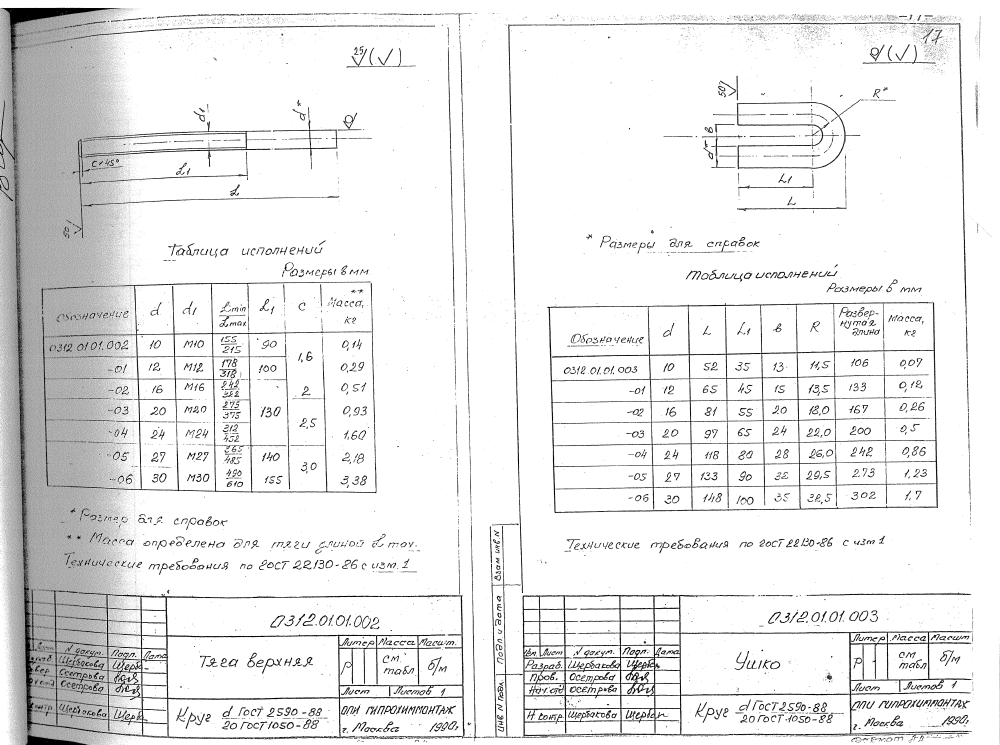 25 (√)
d1
d*
c×45°
L1
L
50
Таблица исполнений
Размеры в мм
Обозначение d d1 Lmin/Lmax L1 c Масса, кг **
0312.01.01.002 10 М10 155/215 90 1,6 0,14
-01 12 М12 178/318 100 0,29
-02 16 М16 242/322 2 0,51
-03 20 М20 275/375 130 2,5 0,93
-04 24 М24 312/452 1,60
-05 27 М27 485 140 3,0 2,18
-06 30 М30 490/610 155 3,38
* Размер для справок
** Масса определена для тяги длиной L max.
Технические требования по ГОСТ 22130-86 с изм.1
0312.01.01.002
Тяга верхняя
Литер Масса Масшт.
Р см. табл б/м
Лист Листов 1
N докум. Подп. Дата
Щербакова
Осетрова
Осетрова
Щербакова
Круг d ГОСТ 2590-88 / 20 ГОСТ 1050-88
СПИ ГИПРОХИММОНТАЖ
г. Москва 1990г.
17
(√)
50
R*
d*
в
L1
L
* Размеры для справок
Таблица исполнений
Размеры в мм
Обозначение d L L1 в R Развернутая длина Масса, кг
0312.01.01.003 10 52 35 13 11,5 106 0,07
-01 12 65 45 15 13,5 133 0,12
-02 16 81 55 20 18,0 167 0,26
-03 20 97 65 24 22,0 200 0,5
-04 24 118 80 28 26,0 242 0,86
-05 27 133 90 32 29,5 273 1,23
-06 30 148 100 35 32,5 302 1,7
Технические требования по ГОСТ 22130-86 с изм 1
Взам инв.N
Подп. и дата
Инв N подл.
0312.01.01.003
Ушко
Литер Масса Масшт
Р см. табл б/м
Лист Листов 1
Изм. Лист N докум. Подп. Дата
Разраб. Щербакова
Пров. Осетрова
Нач.отд Осетрова
Н контр. Щербакова
Круг d ГОСТ 2590-88 / 20 ГОСТ 1050-88
СПИ ГИПРОХИММОНТАЖ
г. Москва 1990г.